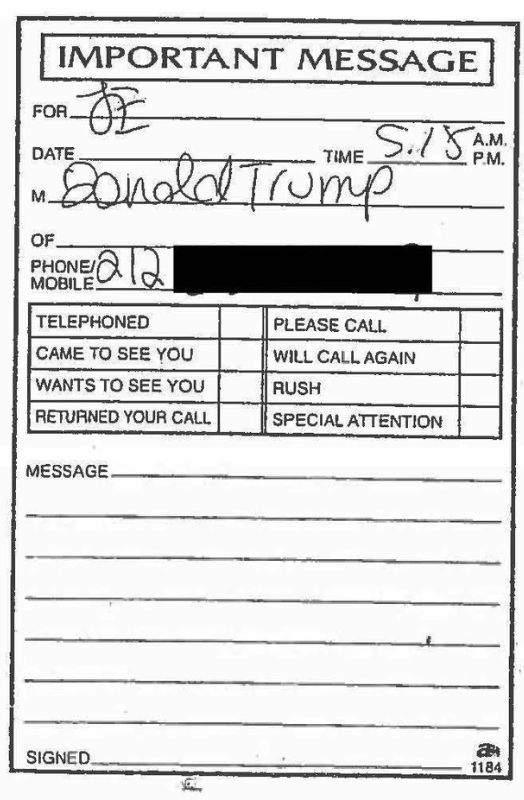 IMPORTANT MESSAGE
FOR JE
DATE TIME 5:15 A.M.
P.M.
M Donald Trump
OF
PHONE/
MOBILE 212
TELEPHONED PLEASE CALL
CAME TO SEE YOU WILL CALL AGAIN
WANTS TO SEE YOU RUSH
RETURNED YOUR CALL SPECIAL ATTENTION
MESSAGE
SIGNED
1184